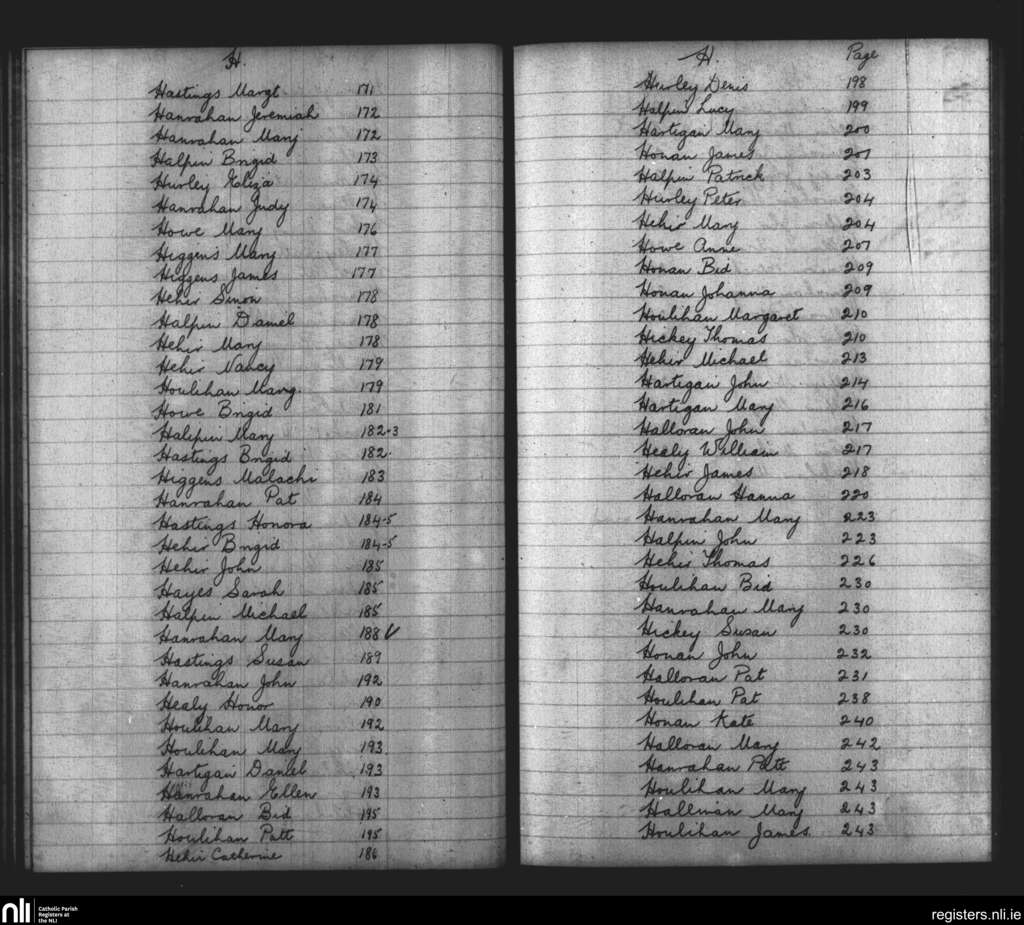 H.
Hastings Margt. 171
Hanrahan Jeremiah 172
Hanrahan Mary 172
Halpin Brigid 173
Hurley Eliza 174
Hanrahan Judy 174
Howe Mary 176
Higgens Mary 177
Higgens James 177
Hehir Simon 178
Halpin Daniel 178
Hehir Mary 178
Hehir Nancy 179
Houlihan Marg. 179
Howe Brigid 181
Halpin Mary 182-3
Hastings Brigid 182.
Higgens Malachi 183
Hanrahan Pat 184
Hastings Honora 184-5
Hehir Brigid 184-5
Hehir John 185
Hayes Sarah 185
Halpin Michael 185
Hanrahan Mary 188 V
Hastings Susan 189
Hanrahan John 192
Healy Honor 190
Houlihan Mary 192
Houlihan Mary 193
Hartigan Daniel 193
Hanrahan Ellen 193
Halloran Bid 195
Houlihan Patt 195
Hehir Catherine 186
H. Page
Hurley Denis 198
Halpin Lucy 199
Hartigan Mary 200
Honan James 201
Halpin Patrick 203
Hurley Peter 204
Hehir Mary 204
Howe Anne 207
Honan Bid 209
Honan Johanna 209
Houlihan Margaret 210
Hickey Thomas 210
Hehir Michael 213
Hartigan John 214
Hartigan Mary 216
Halloran John 217
Healy William 217
Hehir James 218
Halloran Hanna 220
Hanrahan Mary 223
Halpin John 223
Hehir Thomas 226
Houlihan Bid 230
Hanrahan Mary 230
Hickey Susan 230
Honan John 232
Halloran Pat 231
Houlihan Pat 238
Honan Kate 240
Halloran Mary 242
Hanrahan Patt 243
Houlihan Mary 243
Mary 243
Houlihan James. 243
nli Catholic Parish
Registers at
the NLI
registers.nli.ie